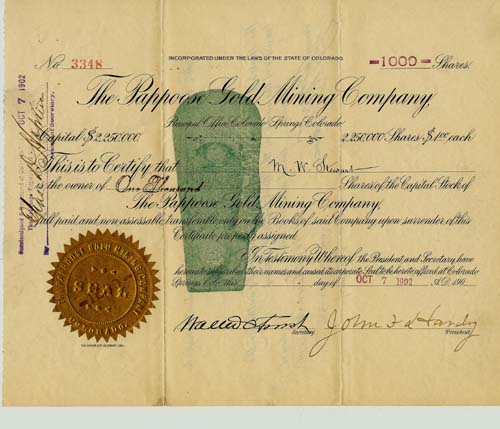 INCORPORATED UNDER THE LAWS OF THE STATE OF COLORADO.
No 3348
-1000- Shares.
The Pappoose Gold Mining Company,
Principal Office, Colorado Springs, Colorado.
Capital $2,250,000.
2,250,000 Shares $1.00 each
This is to Certify that M. W. Stewart
is the owner of One Thousand Shares of the Capital Stock of
The Pappoose Gold Mining Company,
full paid and non-assessable, transferable only on the Books of said Company upon surrender of this
Certificate properly assigned.
In Testimony Whereof the President and Secretary have
hereunto subscribed their names and caused its corporate Seal to be hereto affixed at Colorado
Springs, Colo. this day of OCT 7 1902 A.D. 190
Secretary.
President.
OCT 7 1902
Secretary.
THE PAPPOOSE GOLD MINING COMPANY
SEAL
COLORADO.